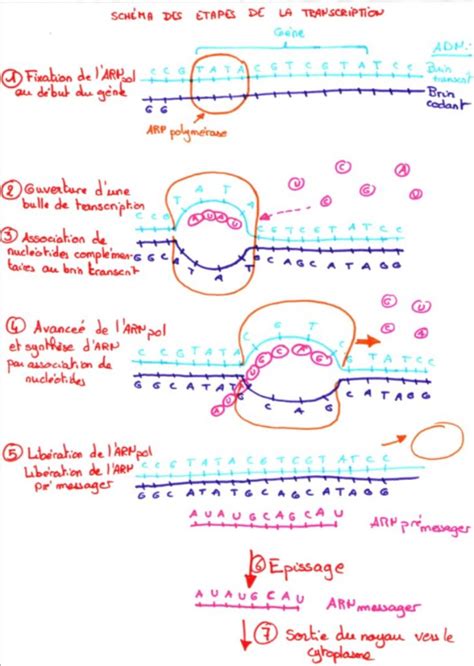 SCHÉMA DES ETAPES DE LA TRANSCRIPTION
Gène
ADN:
① Fixation de l'ARNpol
au début du gène
C C G T A T A C G T C G T A T C C
Brin
transcrit
G G
Brin
codant
ARN polymérase
② Ouverture d'une
bulle de transcription
③ Association de
nucléotides complémen-
taires au brin transcrit
C C G
T A T A
C G T C G T A T C C
A U A U
G G C
A T A T
G C A G C A T A G G
U C A
C G U
④ Avancée de l'ARNpol
et synthèse d'ARN
par association de
nucléotides
C C G T A T A
C G T C
G T A T C C
A U A U G C A G
G G C A T A T
G C A G
C A T A G G
G U
C A
⑤ Libération de l'ARNpol
Libération de l'ARN
pré messager
C C G T A T A C G T C G T A T C C
G G C A T A T G C A G C A T A G G
A U A U G C A G C A U
ARN pré messager
⑥ Epissage
A U A U G C A U
ARN messager
⑦ Sortie du noyau vers le
cytoplasme